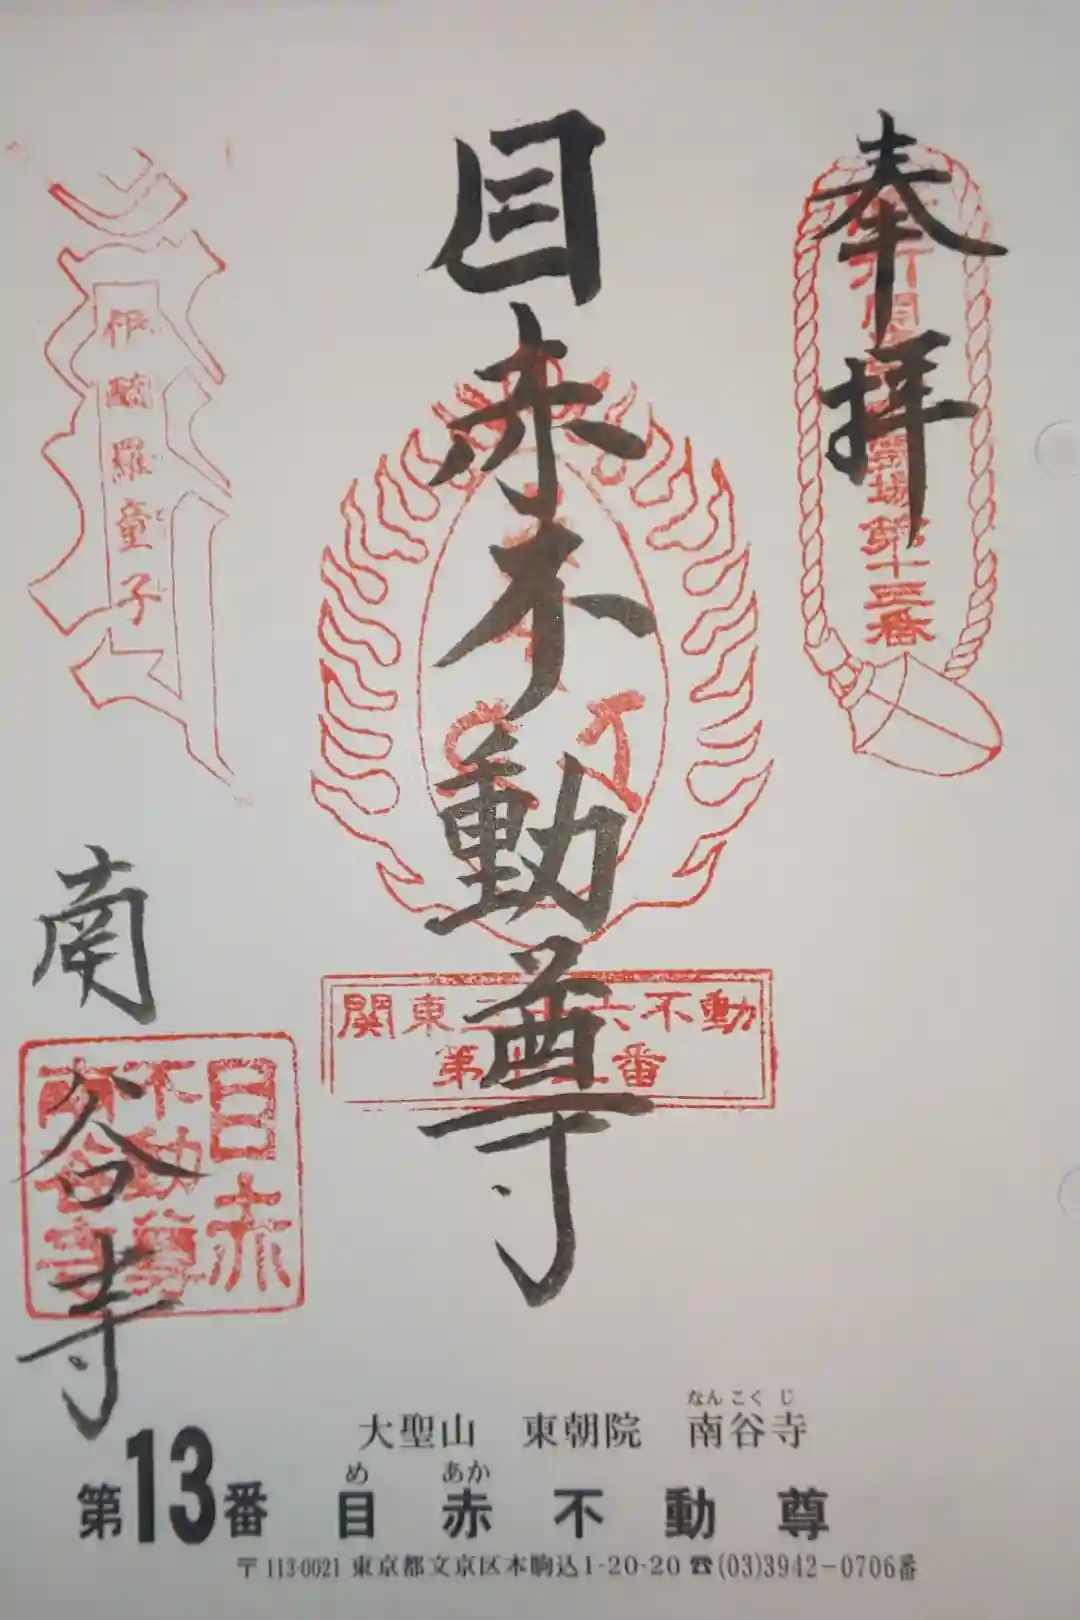 奉拝
第十三番
目赤不動尊
関東三十六不動
第十三番
伊醯羅童子
南谷寺
目赤
不動尊
南谷寺
大聖山 東朝院 南谷寺
なんこくじ
第13番 目赤不動尊
め あか
〒113-0021 東京都文京区本駒込1-20-20 ☎(03)3942-0706番